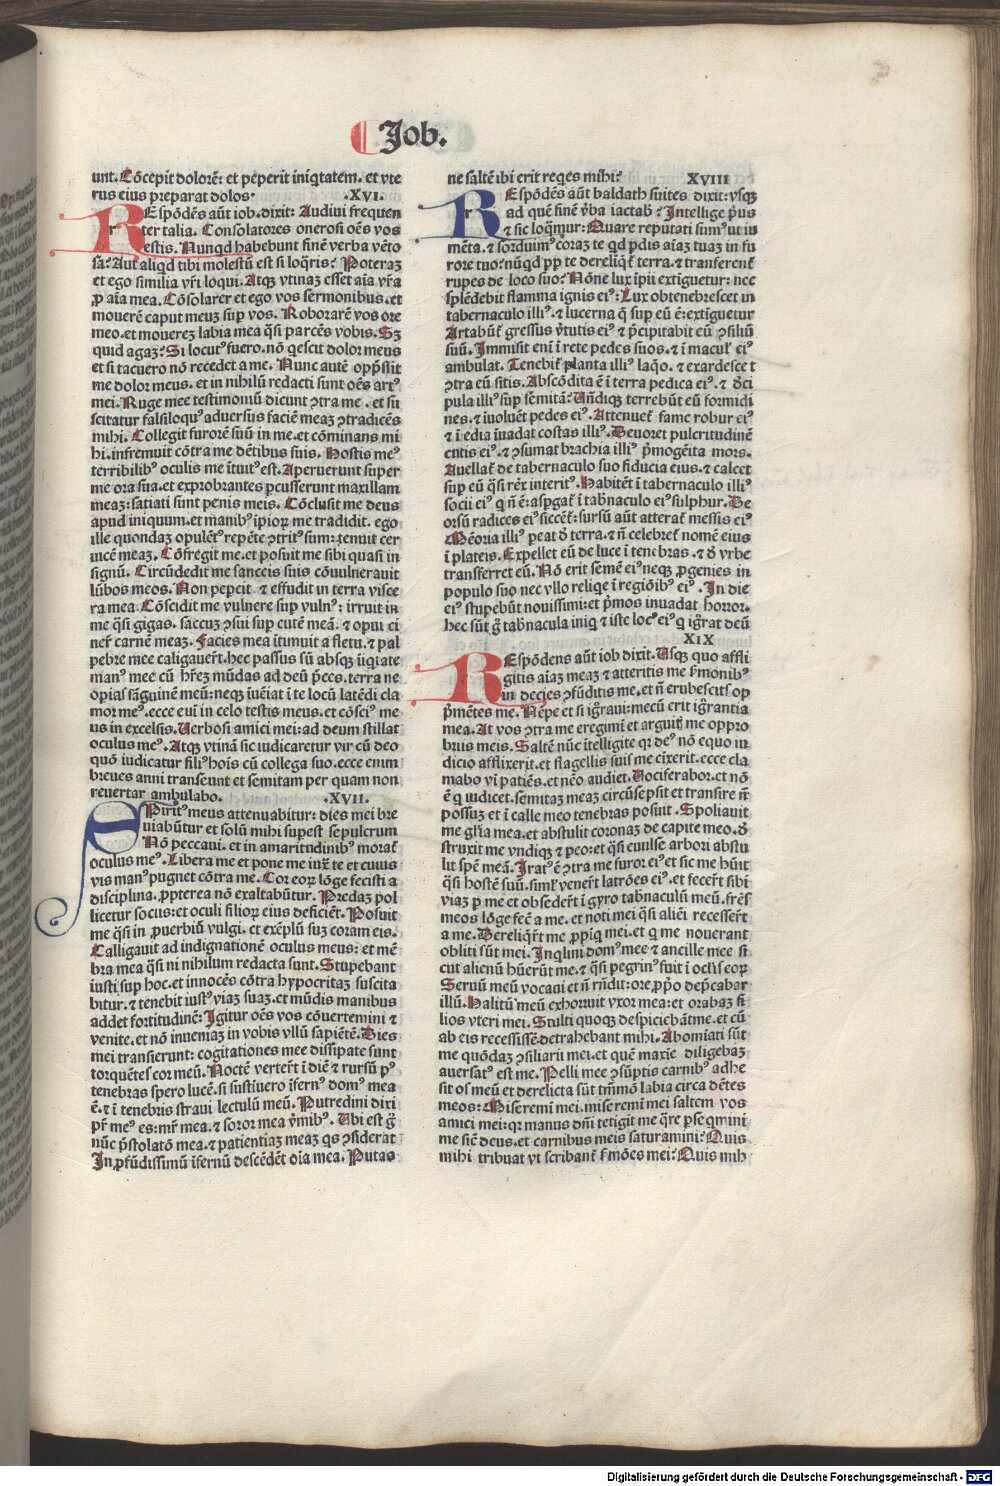 Job.
unt. Cōcepit dolorē: et peperit iniqtatem. et vte
rus eius preparat dolos. .XVI.
REspōdēs aūt iob. dixit: Audiui frequen
ter talia. Consolatores onerosi oēs vos
estis. Nunqd habebunt finē verba vēto
sa? Aut aliqd tibi molestū est si loqris? Poteraꝫ
et ego similia vr̄i loqui. Atqꝫ vtinaꝫ esset aīa vr̄a
ꝓ aīa mea. Cōsolarer et ego vos sermonibus. et
mouerē caput meuꝫ sup vos. Roborarē vos ore
meo. et mouereꝫ labia mea qsi parcēs vobis. Sꝫ
quid agaꝫ? Si locutꝰ fuero. nō qescit dolor meus
et si tacuero nō recedet a me. Nunc autē opp̄ssit
me dolor meus. et in nihilū redacti sunt oēs artꝰ
mei. Ruge mee testimoniū dicunt ꝯtra me. et su
scitatur falsiloquꝰ aduersus faciē meaꝫ ꝯtradicēs
mihi. Collegit furorē suū in me. et cōminans mi
hi. infremuit cōtra me dētibus suis. Hostis meꝰ
terribilibꝰ oculis me ītuitꝰ est. Aperuerunt super
me ora sua. et exprobrantes ꝑcusserunt maxillam
meaꝫ: satiati sunt penis meis. Cōclusit me deus
apud iniquum. et manibꝰ ipioꝝ me tradidit. ego
ille quondaꝫ opulētꝰ repēte ꝯtritꝰ sum: tenuit cer
uicē meaꝫ. Cōfregit me. et posuit me sibi quasi in
signū. Circūdedit me lanceis suis cōuulnerauit
lūbos meos. Non pepcit. ⁊ effudit in terra visce
ra mea. Cōscidit me vulnere sup vulnꝰ: irruit in
me qsi gigas. saccuꝫ ꝯsui sup cutē meā. ⁊ opui ci
ner̄ carnē meaꝫ. Facies mea ītumuit a fletu. ⁊ pal
pebre mee caligauer̄t. hec passus sū absqꝫ īiqtate
manꝰ mee cū hr̄eꝫ mūdas ad deū p̄ces. terra ne
opias sāguinē meū: neqꝫ īueīat ī te locū latēdi cla
mor meꝰ. ecce eni ī in celo testis meus. et cōsciꝰ me
us in excelsis. Uerbosi amici mei: ad deum stillat
oculus meꝰ. Atqꝫ vtinā sic iudicaretur vir cū deo
quō iudicatur filiꝰ hoīs cū collega suo. ecce enim
breues anni transeunt et semitam per quam non
reuertar ambulabo. .XVII.
SPiritꝰ meus attenuabitur: dies mei bre
viabūtur et solū mihi supest sepulcrum
Nō peccaui. et in amaritudinibꝰ morat̄
oculus meꝰ. Libera me et pone me iuxͣ te et cuius
vis manꝰ pugnet cōtra me. Cor eoꝝ lōge fecisti a
disciplina. ꝓpterea nō exaltabūtur. Predaꝫ pol
licetur socus: et oculi filioꝝ eius deficiēt. Posuit
me qsi in ꝓuerbiū vulgi. et exēplū suꝫ coram eis.
Calligauit ad indignationē oculus meus: et mē
bra mea qsi ni nihilum redacta sunt. Stupebant
iusti sup hoc. et innocēs cōtra hypocritaꝫ suscita
bitur. ⁊ tenebit iustꝰ viaꝫ suaꝫ. et mūdis manibus
addet fortitudinē. Igitur oēs vos cōuertemini ⁊
venite. et nō inueniaꝫ in vobis vllū sapiētē. Dies
mei transierunt: cogitationes mee dissipate sunt
torquētes cor meū. Noctē verter̄t ī diē ⁊ rursū pꝰ
tenebras spero lucē. si sustiuero īfernꝰ domꝰ mea
ē. ⁊ ī tenebris straui lectulū meū. Putredini dixi
pr̄ meꝰ es: mr̄ mea. ⁊ soror mea v̄mibꝰ. Ubi est g̊
nūc p̄stolatō mea. ⁊ patientiaꝫ meaꝫ qs ꝯsiderat
In ꝓfūdissimū īfernū descēdēt oīa mea. Putas
ne saltē ibi erit reqes mihi? XVIII
REspōdēs aūt baldath suites dixit: vsqꝫ
ad quē finē v̄ba iactab? Intellige p̄us
⁊ sic loqmur: Quare reputati sumꝰ ut iu
mēta. ⁊ sorduimꝰ coraꝫ te qd pdis aīaꝫ tuaꝫ in fu
rore tuo? nūqd ꝓp te dereliq̄t terra. ⁊ tranferent̄
rupes de loco suo? Nōne lux īpii extiguetur: nec
splēdebit flamma ignis eiꝰ: Lux obtenebrescet in
tabernaculo illiꝰ. ⁊ lucerna q̄ sup eū ē: extiguetur
Artabūt̄ gressus v̄tutis eiꝰ ⁊ p̄cipitabit eū ꝯsiliū
suū. Immisit enī ī rete pedes suos. ⁊ ī maculꝭ eiꝰ
ambulat. Tenebit̄ planta illiꝰ laqo. ⁊ exardescet
ꝯtra eū sitis. Abscōdita ē ī terra pedica eiꝰ. ⁊ d̄ci
pula illiꝰ sup semitā? Uñdiqꝫ terrebūt eū formidi
nes. ⁊ iuoluēt pedes eiꝰ. Attenuet̄ fame robur eiꝰ
⁊ ī edia īuadat costas illiꝰ. Deuoret pulcritudinē
cutis eiꝰ. ⁊ ꝯsumat brachia illiꝰ p̄mogēita mors.
Auellat̄ de tabernaculo suo fiducia eius. ⁊ calcet
sup eū qsi rex interitꝰ. Habitēt ī tabernaculo illiꝰ
socii eiꝰ q ñ ē: aspgat̄ ī tab̄naculo eiꝰ sulphur. De
orsū radices eiꝰ siccēt̄: sursū aūt atterat̄ messis eiꝰ
Mēoria illiꝰ peat d̄ terra. ⁊ ñ celebret̄ nomē eius
ī plateis. Expellet eū de luce ī tenebras. ⁊ d̄ vrbe
transferret eū. Nō erit semē eiꝰ neqꝫ ꝓgenies in
populo suo nec vllo reliqe ī regiōibꝰ eiꝰ. In die
eiꝰ stupebūt nouissimi: et p̄mos inuadat horror.
hec sūt g̊ tab̄nacula iniq ⁊ iste locꝰ eiꝰ q igr̄at deū
XIX
REspōdens aūt iob dixit. Usqꝫ quo affli
gitis aīaꝫ meaꝫ ⁊ atteritis me s̄monibꝰ
in decies ꝯfūditis me. et ñ erubescitꝭ op
p̄mētes me. Nēpe et si igr̄aui: mecū erit igr̄antia
mea. At vos ꝯtra me eregimī et arguitꝭ me oppro
briis meis. Saltē nūc ītelligite qr deꝰ nō equo iu
dicio afflixerit. et flagellis suis me cixerit. ecce cla
mabo vī patiēs. et nēo audiet. Uociferabor. et nō
ē q iudicet. semitaꝫ meaꝫ circūsepsit et transire ñ
possuꝫ et ī calle meo tenebras posuit. Spoliauit
me gl̄ia mea. et abstulit coronaꝫ de capite meo. d̄
struxit me vndiqꝫ ⁊ peo: et qsi euulse arbori abstu
lit spē meā. Iratꝰ ē ꝯtra me furor eiꝰ et sic me h̄uit
qsi hostē suū. siml̄ vener̄t latrōes eiꝰ. et fecer̄t sibi
viaꝫ ꝑ me et obseder̄t ī gyro tabnaculū meū. fr̄es
meos lōge fec̄ a me. et noti mei qsi alieī recesser̄t
a me. Dereliqr̄t me ꝓpīq mei. et q me nouerant
obliti sūt mei. Inqlini domꝰ mee ⁊ ancille mee si
cut alienū h̄uer̄ūt me. ⁊ qsi pegrinꝰ fui ī ocl̄is eoꝝ
Seruū meū vocaui et ñ rn̄dit: ore ꝓp̄o dep̄cabar
illū. Halitū meū exhorruit vxor mea: et orabaꝫ fi
lios vteri mei. Stulti quoqꝫ despiciebātme. et cū
ab eis recessissē detrahebant mihi. Abomīati sūt
me quōdaꝫ ꝯsiliarii mei. et quē maxīe diligebaꝫ
auersatꝰ est me. Pelli mee ꝯsūptis carnibꝰ adhe
sit os meū et derelicta sūt tm̄mō labia circa dētes
meos: Miseremī mei. miseremī mei saltem vos
amici mei: qr manus dn̄i tetigit me qr̄e ꝑseqmini
me sic̄ deus. et carnibus meis saturamini? Quis
mihi tribuat vt scribant̄ s̄mōes mei? Quis mih
Digitalisierung gefördert durch die Deutsche Forschungsgemeinschaft - DFG